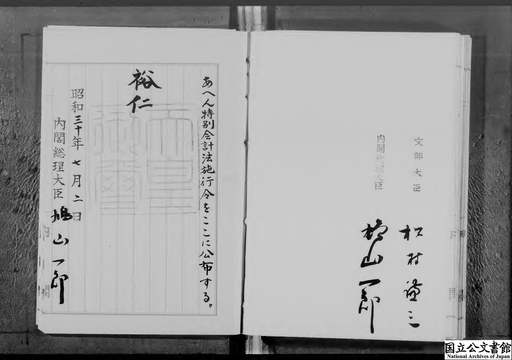 あへん特別会計法施行令をここに公布する。
裕仁
天皇御璽
昭和三十年七月二日
内閣総理大臣 鳩山一郎
文部大臣 松村謙三
内閣総理大臣 鳩山一郎
国立公文書館
National Archives of Japan